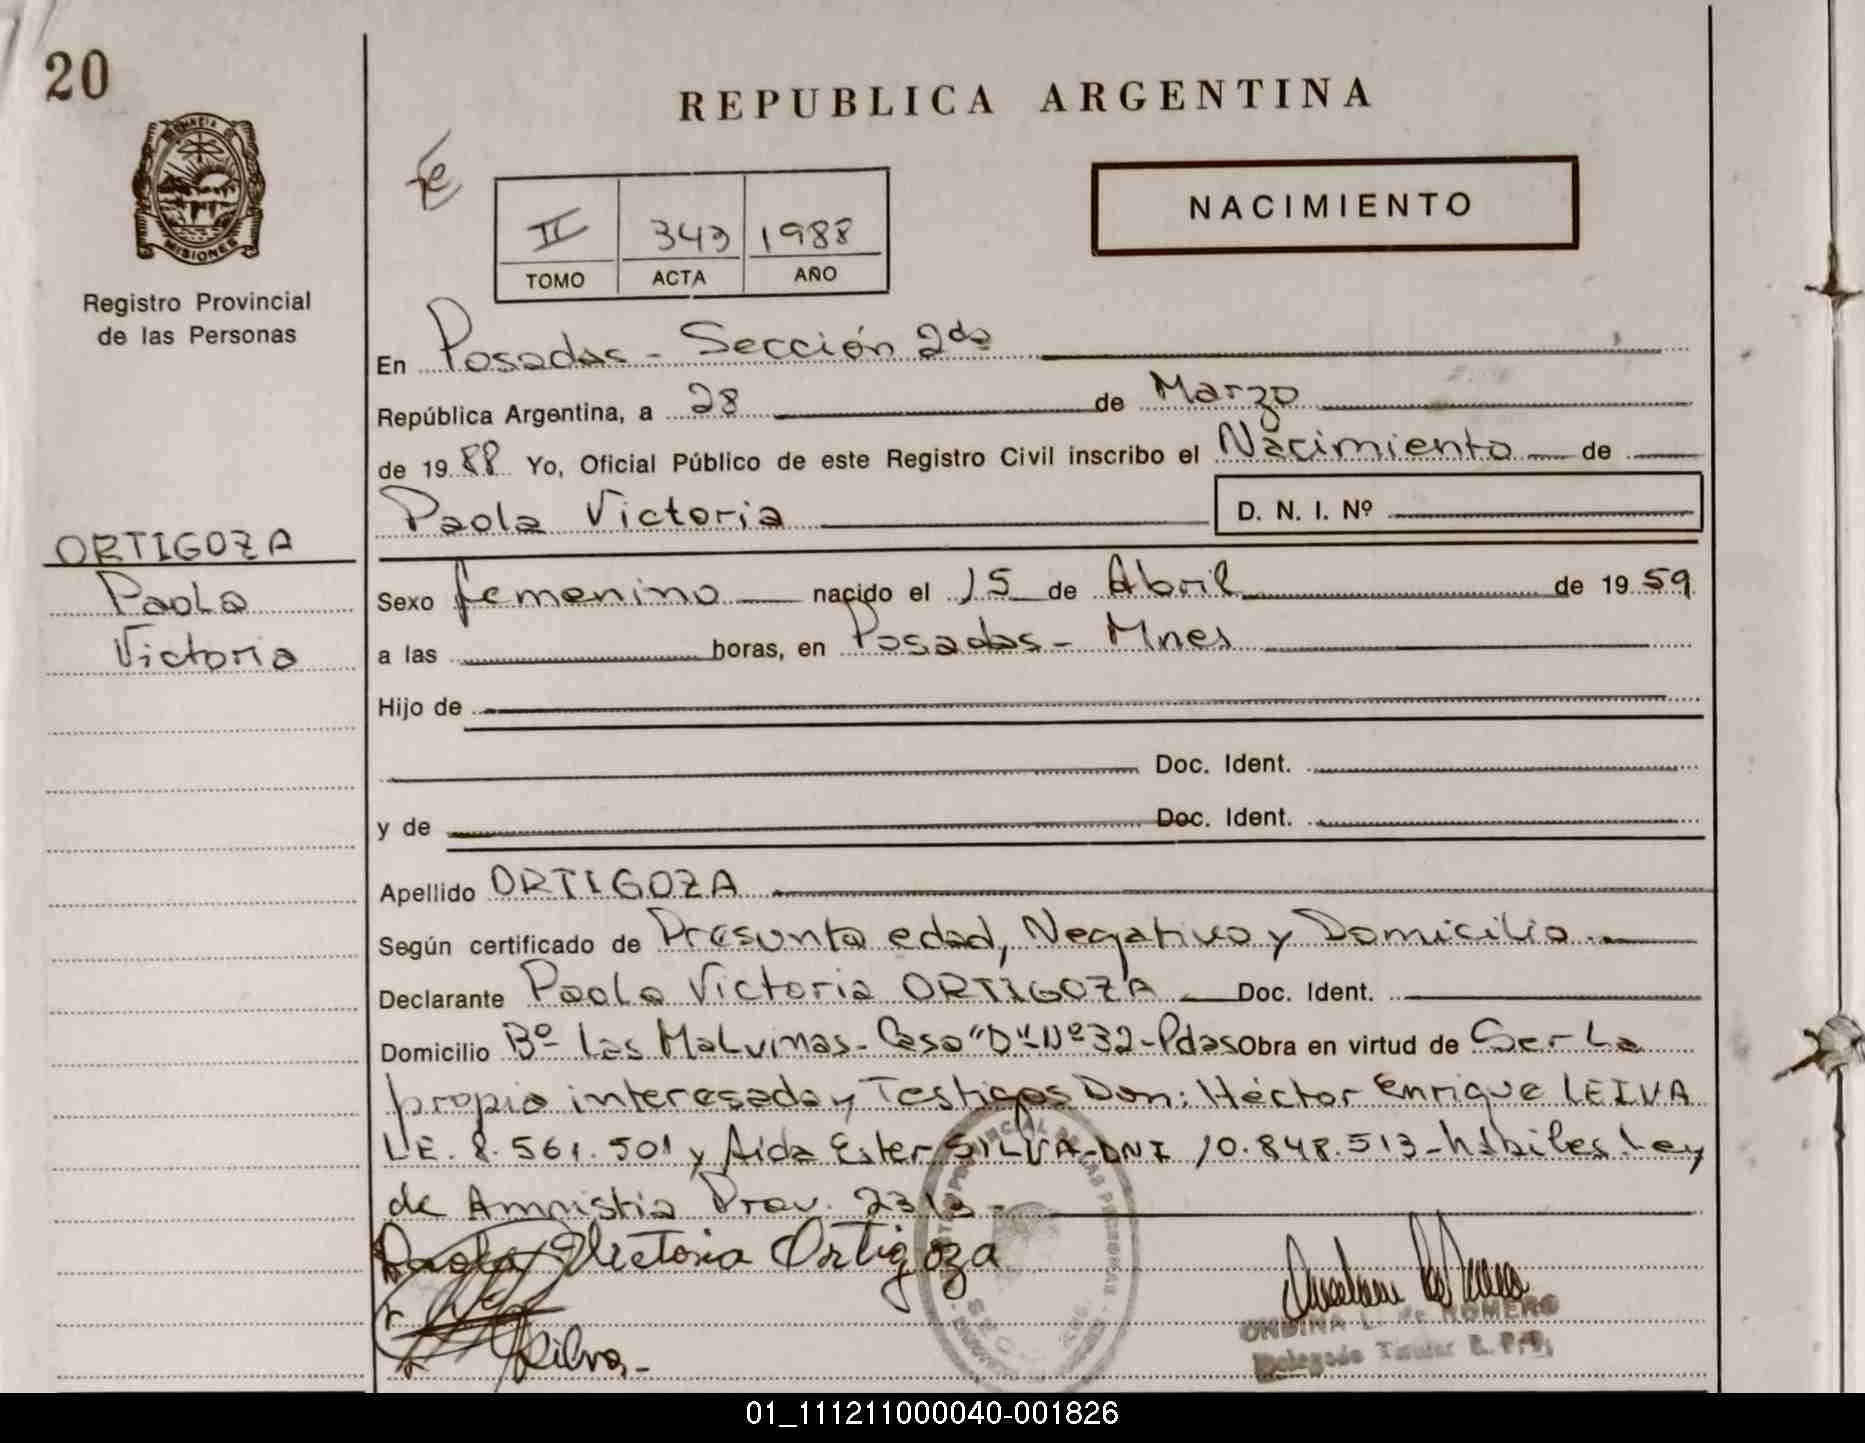 20
PROVINCIA DE
MISIONES
Registro Provincial
de las Personas
REPUBLICA ARGENTINA
II 343 1988
TOMO ACTA AÑO
NACIMIENTO
En Posadas - Sección 2da
República Argentina, a 28 de Marzo
de 1988 Yo, Oficial Público de este Registro Civil inscribo el Nacimiento de
Paola Victoria D. N. I. Nº
ORTIGOZA
Paola
Victoria
Sexo femenino nacido el 15 de Abril de 1959
a las horas, en Posadas - Mnes
Hijo de
Doc. Ident.
y de Doc. Ident.
Apellido ORTIGOZA
Según certificado de Presunta edad, Negativo y Domicilio
Declarante Paola Victoria ORTIGOZA Doc. Ident.
Domicilio Bº Las Malvinas - Casa "D" Nº 32 - Pdas Obra en virtud de Ser la
propia interesada y Testigos Don: Héctor Enrique LEIVA
LE. 8.561.501 y Aida Ester SILVA - DNI 10.848.513 - hábiles. Ley
de Amnistia Prov. 2313 -
Paola Victoria Ortigoza
Silva, -
ONDINA L. de ROMERO
Delegado Titular R. P. P.
01_111211000040-001826